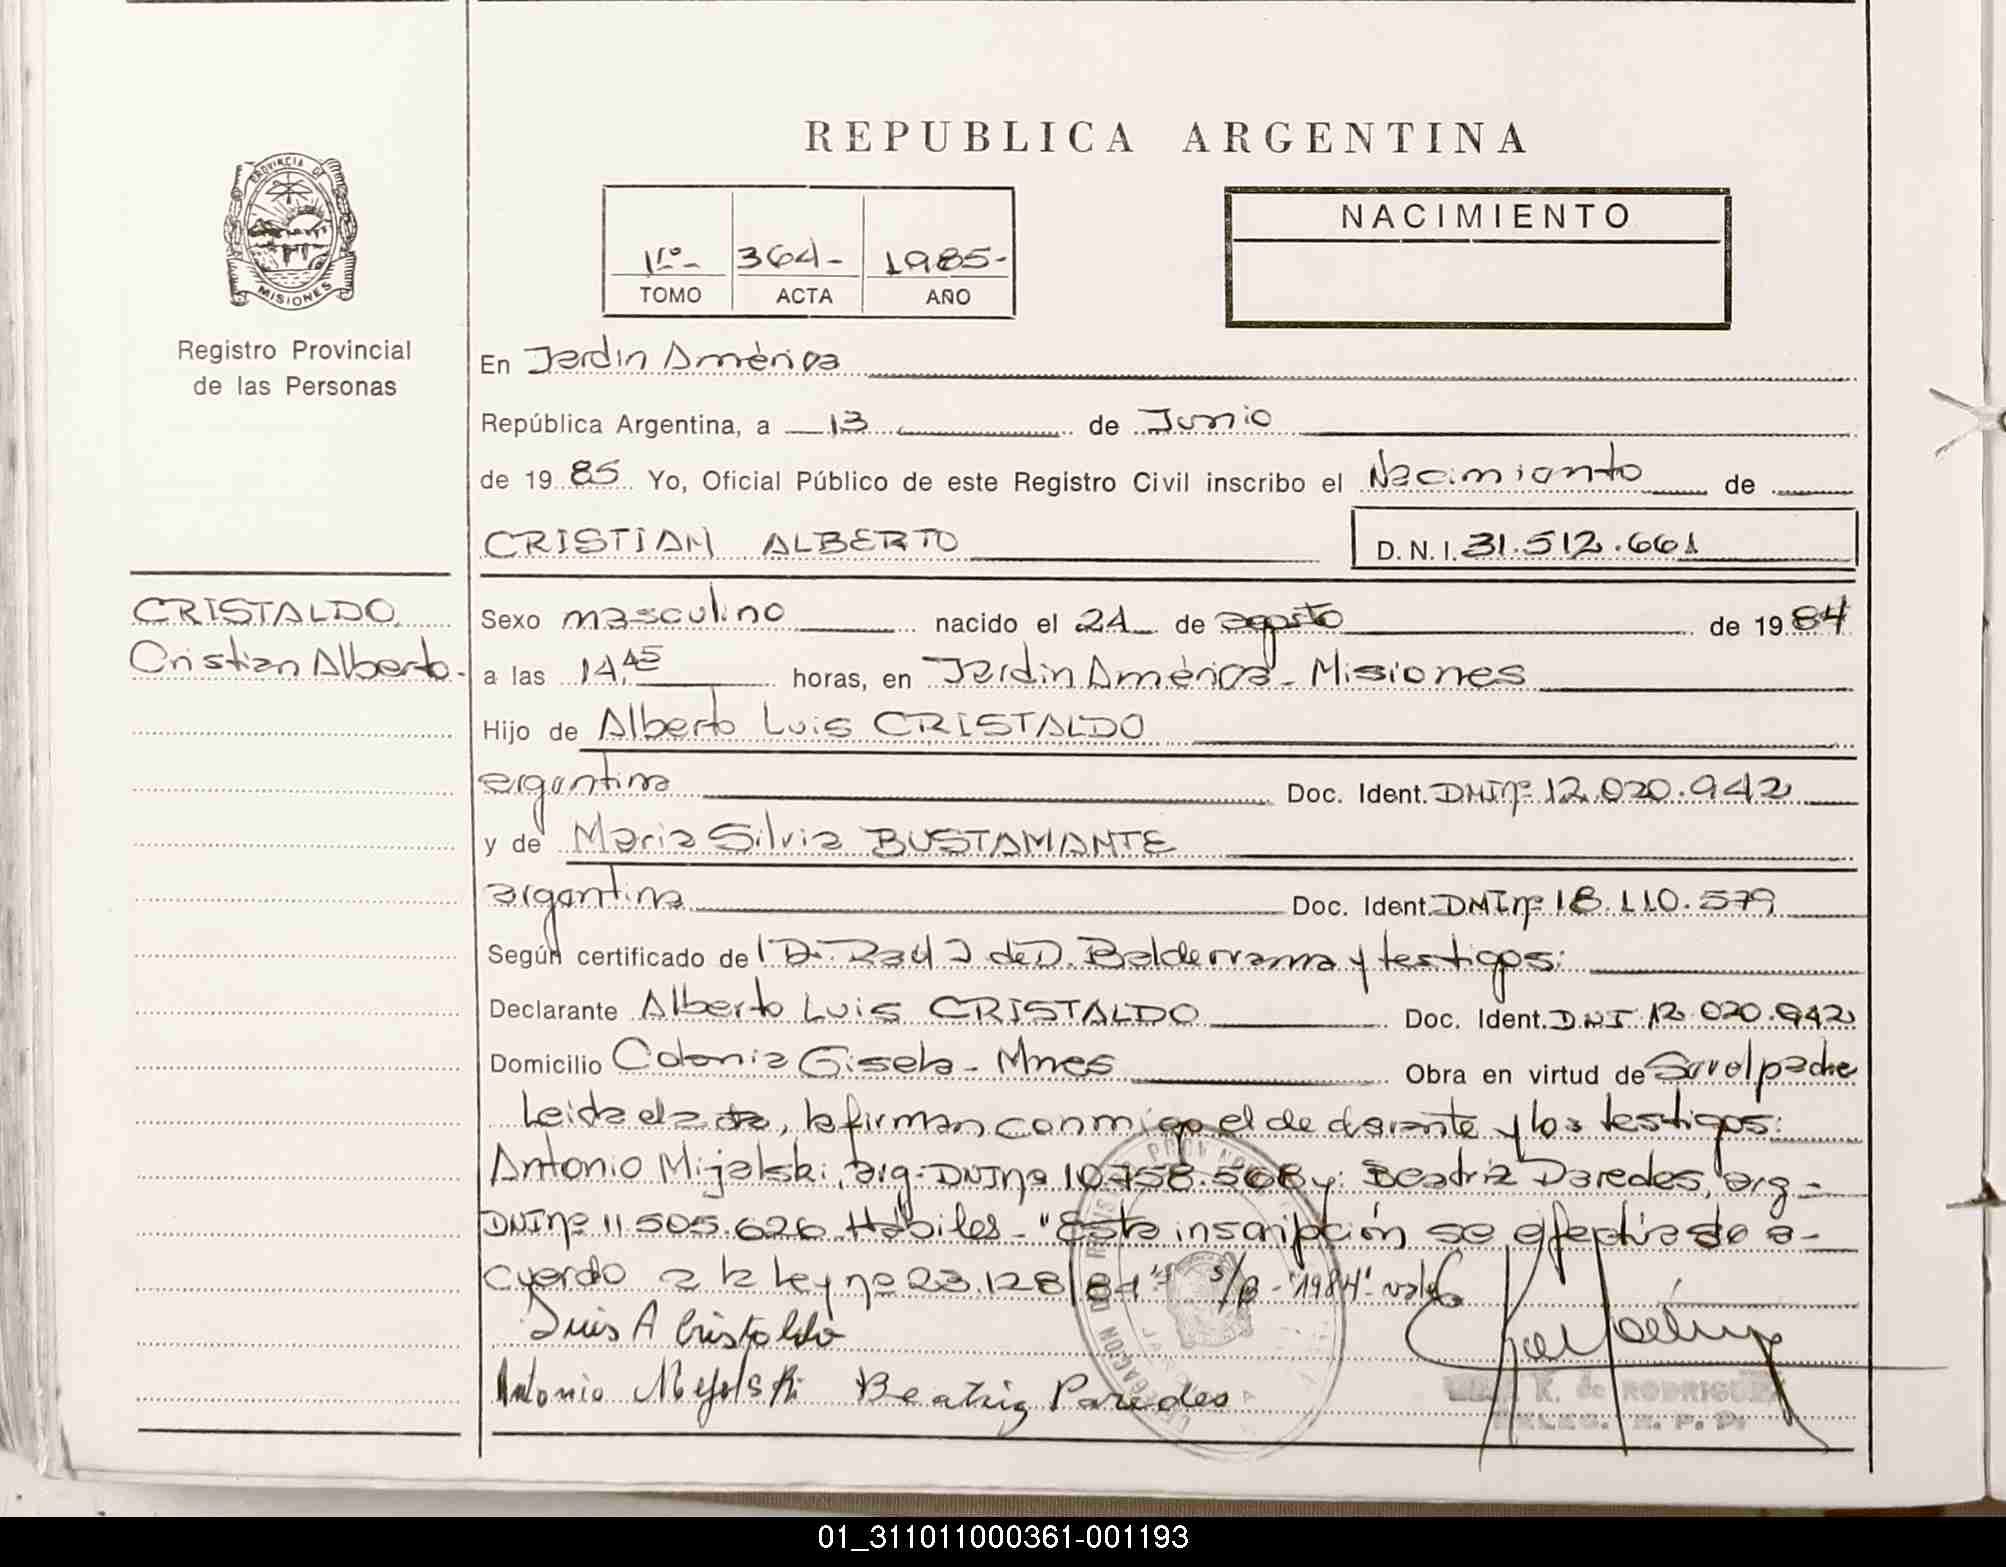 REPUBLICA ARGENTINA
PROVINCIA DE
MISIONES
Registro Provincial
de las Personas
1ro- 364- 1985-
TOMO ACTA AÑO
NACIMIENTO
En Jardin América
República Argentina, a 13 de Junio
de 19 85 Yo, Oficial Público de este Registro Civil inscribo el Nacimiento de
CRISTIAN ALBERTO D.N.I. 31.512.661
CRISTALDO
Cristian Alberto.-
Sexo masculino nacido el 24 de agosto de 1984
a las 14,45 horas, en Jardin América - Misiones
Hijo de Alberto Luis CRISTALDO
argentina Doc. Ident. DNInº 12.020.942
y de Maria Silvia BUSTAMANTE
argentina Doc. Ident. DNInº 18.110.579
Según certificado de Dr. Raul J de D. Balderrama y testigos:
Declarante Alberto Luis CRISTALDO Doc. Ident. DNI 12.020.942
Domicilio Colonia Gisela - Mnes Obra en virtud de ser el padre
Leida el acta, la firman conmigo el declarante y los testigos:
Antonio Mijalski, arg. DNInº 10.758.568 y: Beatriz Paredes, arg-
DNInº 11.505.626 Hábiles - "Esta inscripción se efectúa de a-
cuerdo a la ley nº 23.128/84" s/b - "1984" vale
Luis A Cristaldo
Antonio Mejalski Beatriz Paredes
K. de RODRIGUEZ
DELEG. R. P. P.
01_311011000361-001193